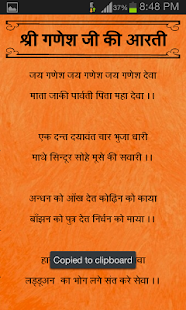 8:48 PM
श्री गणेश जी की आरती
जय गणेश जय गणेश जय गणेश देवा
माता जाकी पार्वती पिता महा देवा ।।
एक दन्त दयावंत चार भुजा धारी
माथे सिन्दूर सोहे मूसे की सवारी ।।
अन्धन को आंख देत कोढ़िन को काया
बांझन को पुत्र देत निर्धन को माया ।।
Copied to clipboard
लड्डुअन का भोग लगे संत करे सेवा ।।